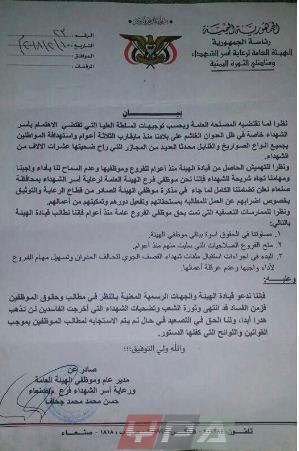 الجمهورية اليمنية
رئاسة الجمهورية
الهيئة العامة لرعاية أسر الشهداء
ومناضلي الثورة اليمنية
الرقم:
التاريخ:
الموافق:
المرفقات:
بيان
نظرا لما تقتضيه المصلحة العامة وبحسب توجيهات السلطة العليا التي تقتضي الاهتمام بأسر
الشهداء خاصة في ظل العدوان الغاشم على بلادنا منذ مايقارب الثلاثة أعوام واستهدافه المواطنين
بجميع أنواع الصواريخ والقنابل محدثا العديد من المجازر التي راح ضحيتها عشرات الآلاف من
الشهداء.
ونظرا للتهميش الحاصل من قيادة الهيئة منذ أعوام للفروع وموظفيها وعدم السماح لنا بأداء واجبنا
ومهامنا تجاه شريحة الشهداء فإننا نحن موظفي فرع الهيئة العامة لرعاية أسر الشهداء بمحافظة
صنعاء نعلن تضامننا الكامل لما جاء في مذكرة موظفي الهيئة الصادر من قطاع الرعاية والتوثيق
بخصوص اضرابهم عن العمل للمطالبة بمستحقاتهم وتفعيل دورهم وتمكينهم من أعمالهم.
ونظرا للممارسات التعسفية التي تمت بحق موظفي الفروع عامة منذ أعوام فإننا نطالب قيادة الهيئة
بالتالي:
١. مساواتنا في الحقوق أسوة بباقي موظفي الهيئة.
٢. منح الفروع الصلاحيات التي سلبت منهم منذ أعوام.
٣. البدء في إجراءات استقبال ملفات شهداء القصف الجوي لتحالف العدوان وتسهيل مهام الفروع
لأداء واجبها وعدم عرقلة أعمالها.
وعليه:
فإننا ندعو قيادة الهيئة والجهات الرسمية المعنية بالنظر في مطالب وحقوق الموظفين
فزمن الفساد قد انتهى وثورة الشعب وتضحيات الشهداء التي أخرجت الفاسدين لن تذهب
هدرا أبدا، ولنا الحق في التصعيد في حال لم يتم الاستجابة لمطالب الموظفين بموجب
القوانين واللوائح التي كفلها الدستور.
والله ولي التوفيق،،،
صادر عن
مدير عام وموظفي الهيئة العامة
ورعاية أسر الشهداء فرع م/صنعاء
حسن محمد محمد جحاف